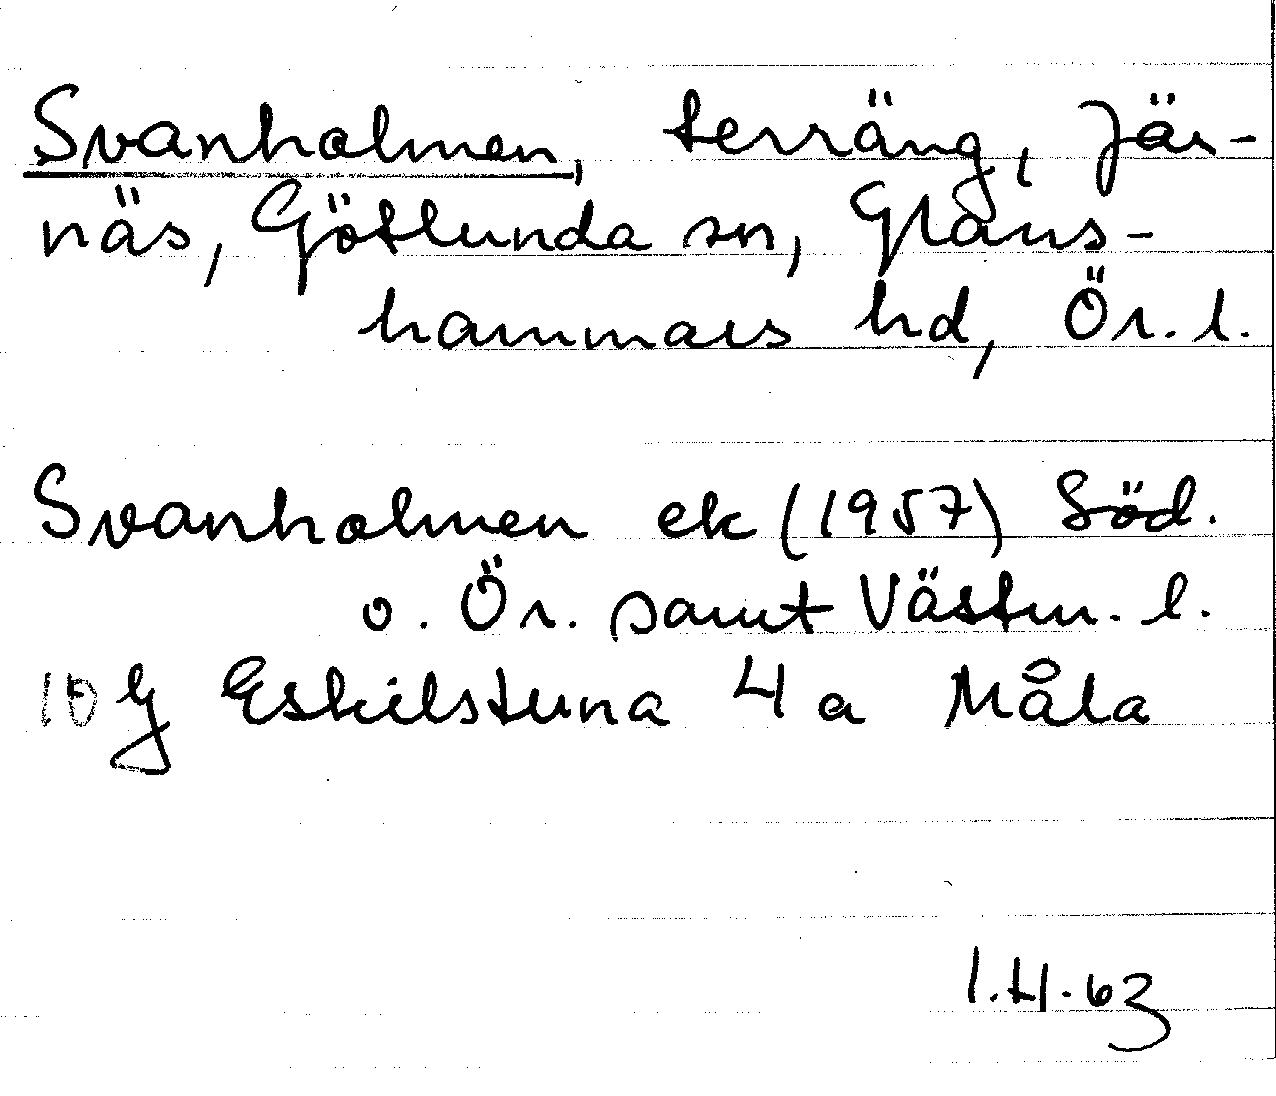 Svanholmen, terräng, Jär-
näs, Götlunda sn, Glans-
hammars hd, Ör. l.
Svanholmen ek (1957) Söd.
o. Ör. samt Västm. l.
10 g Eskilstuna 4 a Måla
1.4.63